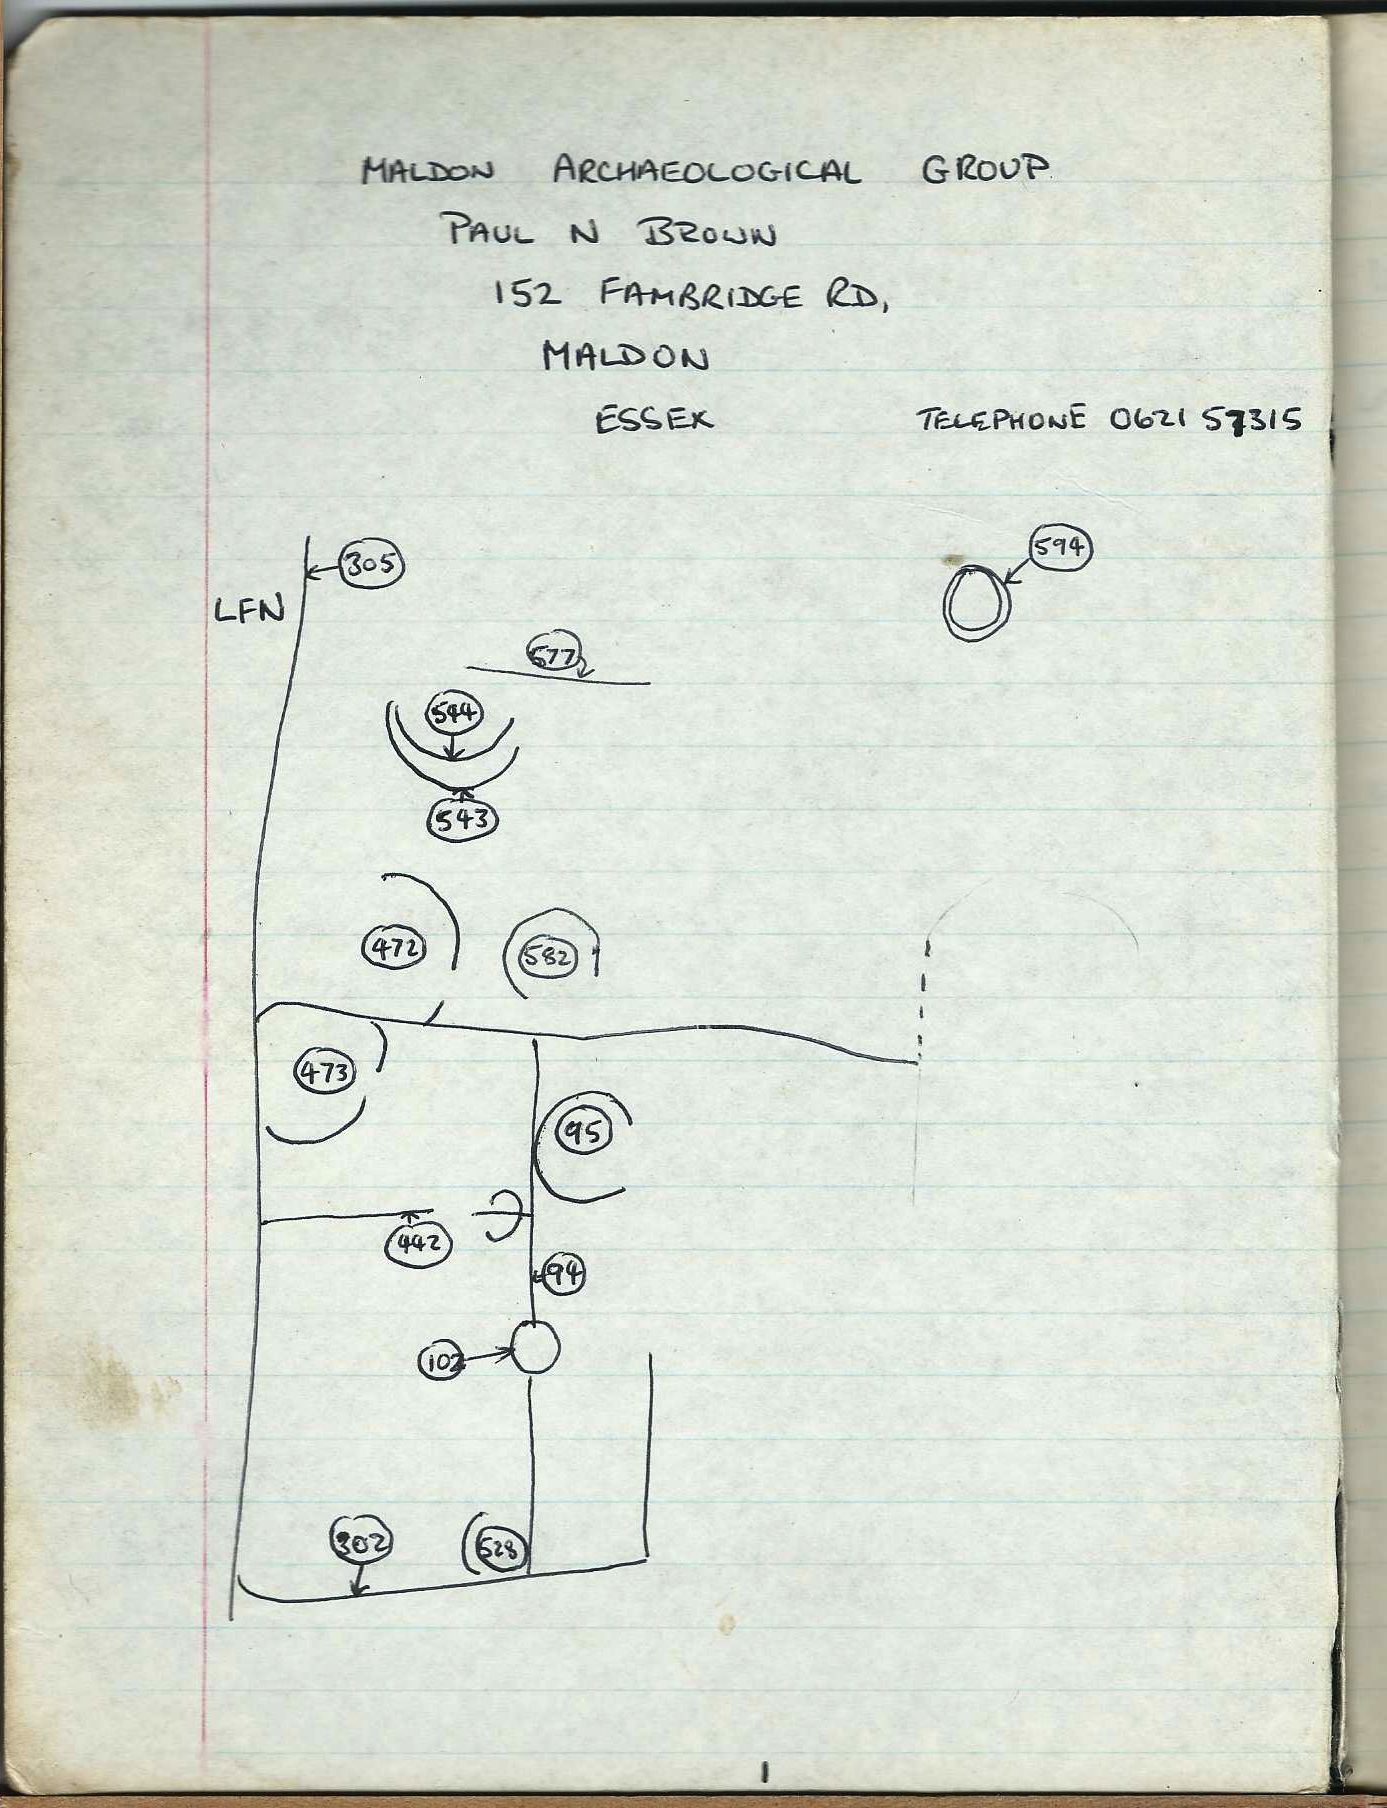 MALDON ARCHAEOLOGICAL GROUP
PAUL N BROWN
152 FAMBRIDGE RD,
MALDON
ESSEX TELEPHONE 0621 57315
305
594
LFN
577
544
543
472
582
473
95
442
94
102
302
528
1